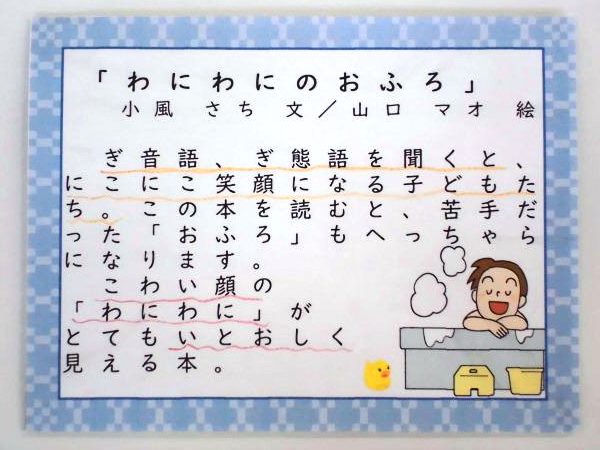 「わにわにのおふろ」
小風 さち 文／山口 マオ 絵
ぎ音語、ぎ態語を聞くと、
にこにこ笑顔になる子どもた
ち。この本を読むと、苦手だ
った「おふろ」もへっちゃら
になります。
こわい顔の
「わにわに」が
とてもいとおしく
見える本。